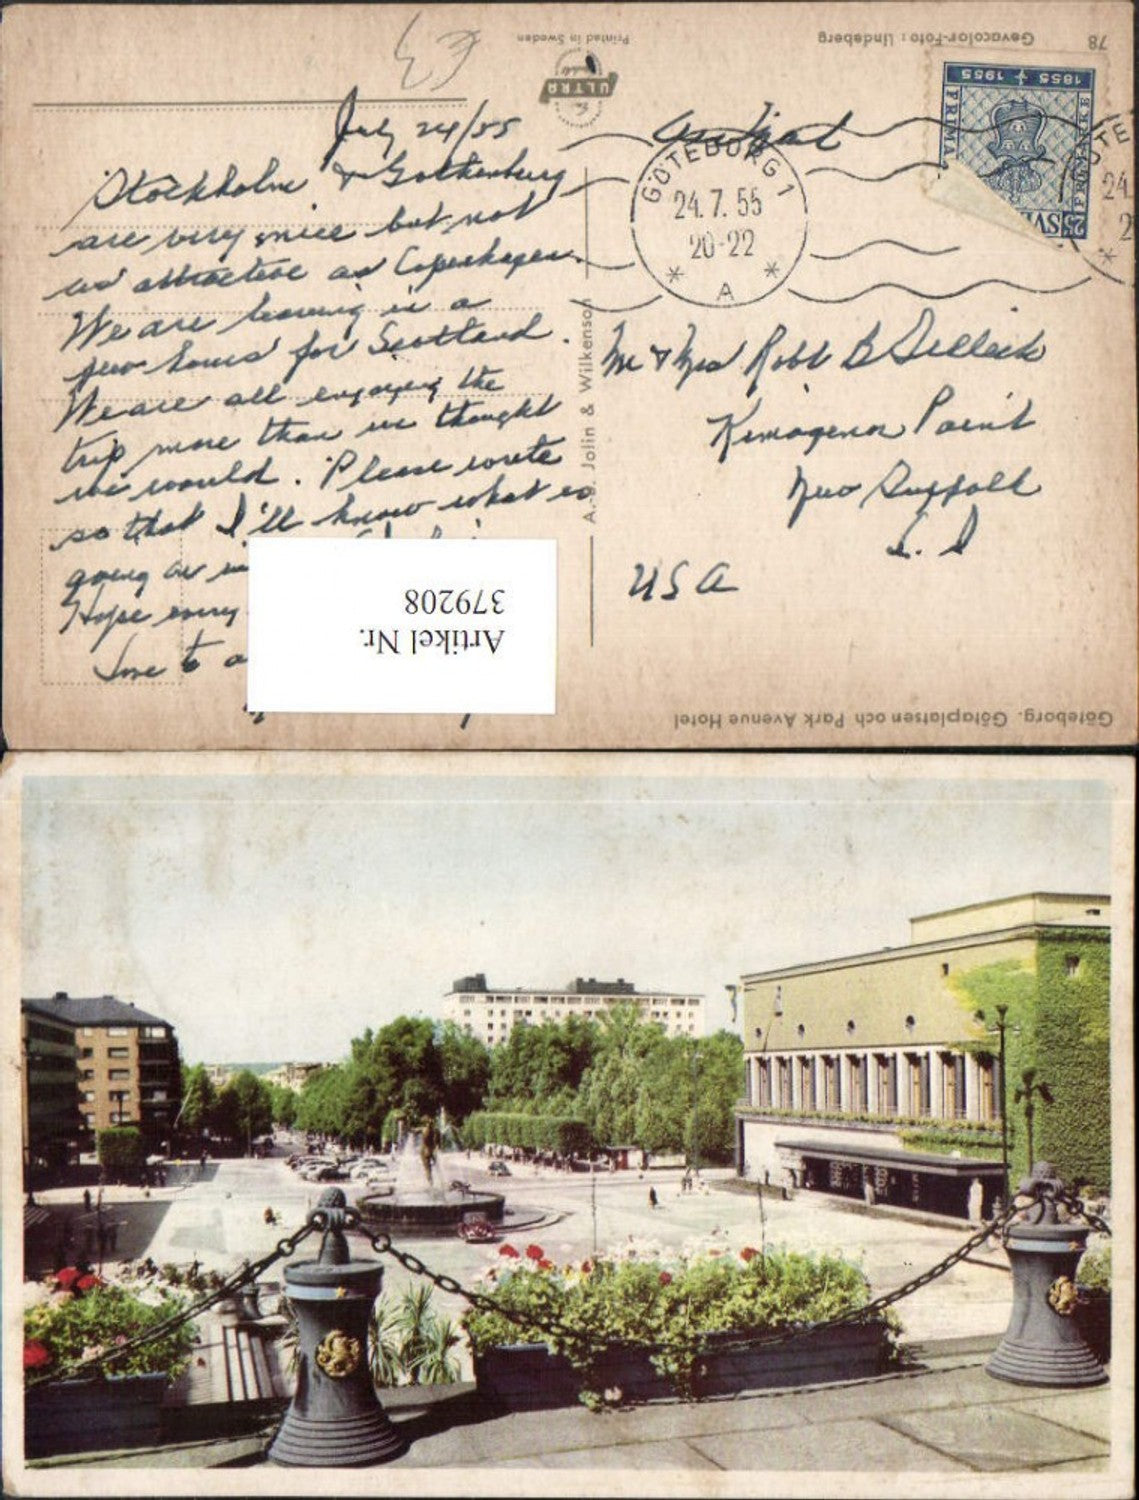 78
Gevacolor-Foto: Lindeberg
Printed in Sweden
ULTRA
1855 1955
FRIMÄRKE
25
July 24/55
Air Mail
GÖTEBORG 1
24.7.55
20-22
A
Stockholm & Gothenburg
are very nice but not
as attractive as Copenhagen.
We are leaving in a
few hours for Scotland.
We are all enjoying the
trip more than we thought
we would. Please write
so that I'll know what is
going on
Hope every
Love to a
Mr & Mrs Robt B
Point
New Suffolk
L. I
USA
A.-B. Jolin & Wilkenson
Artikel Nr.
379208
Göteborg. Götaplatsen och Park Avenue Hotel